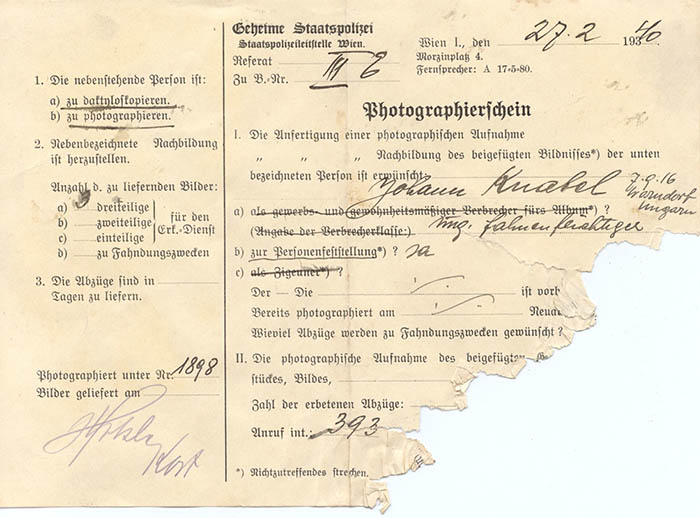 1. Die nebenstehende Person ist:
a) zu daktyloskopieren.
b) zu photographieren.
2. Nebenbezeichnete Nachbildung
ist herzustellen.
Anzahl d. zu liefernden Bilder:
a) 3 dreiteilige
b) zweiteilige
c) einteilige
für den
Erk.-Dienst
d) zu Fahndungszwecken
3. Die Abzüge sind in
Tagen zu liefern.
Photographiert unter Nr. 1898
Bilder geliefert am
Geheime Staatspolizei
Staatspolizeileitstelle Wien.
Referat
Zu B.-Nr. III E
Wien I., den 27. 2 1940.
Morzinplatz 4.
Fernsprecher: A 17-5-80.
Photographierschein
I. Die Anfertigung einer photographischen Aufnahme
„ „ „ Nachbildung des beigefügten Bildnisses*) der unten
bezeichneten Person ist erwünscht
Johann Knabel 7.9.16
Ungarn
a) als gewerbs- und gewohnheitsmäßiger Verbrecher fürs Album*) ?
(Angabe der Verbrecherklasse:) ung.
b) zur Personenfeststellung*) ? ja
c) als Zigeuner*) ?
Der — Die ist vorb
Bereits photographiert am Neuau
Wieviel Abzüge werden zu Fahndungszwecken gewünscht ?
II. Die photographische Aufnahme des beigefügten
stückes, Bildes,
Zahl der erbetenen Abzüge:
Anruf int.: 393
*) Nichtzutreffendes strechen.